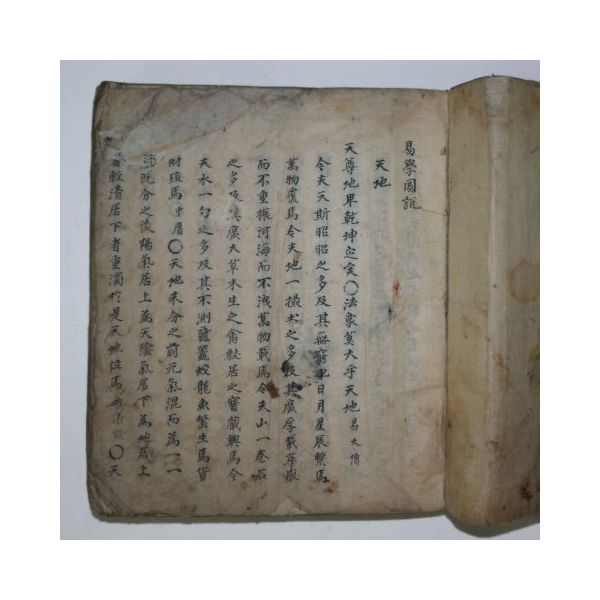 易學圖說
天地
天尊地卑乾坤定矣〇法象莫大乎天地易大傳
今夫天斯昭昭之多及其無窮也日月星辰繫焉
萬物覆焉今夫地一撮土之多及其廣厚載華嶽
而不重振河海而不洩萬物載焉今夫山一卷石
之多及其廣大草木生之禽獸居之寶藏興焉今
夫水一勺之多及其不測黿鼉蛟龍魚鱉生焉貨
財殖焉中庸〇天地未分之前元氣混而為一
氣既分之後陽氣居上為天陰氣居下為地居上
者輕清居下者重濁於是天地位焉〇天